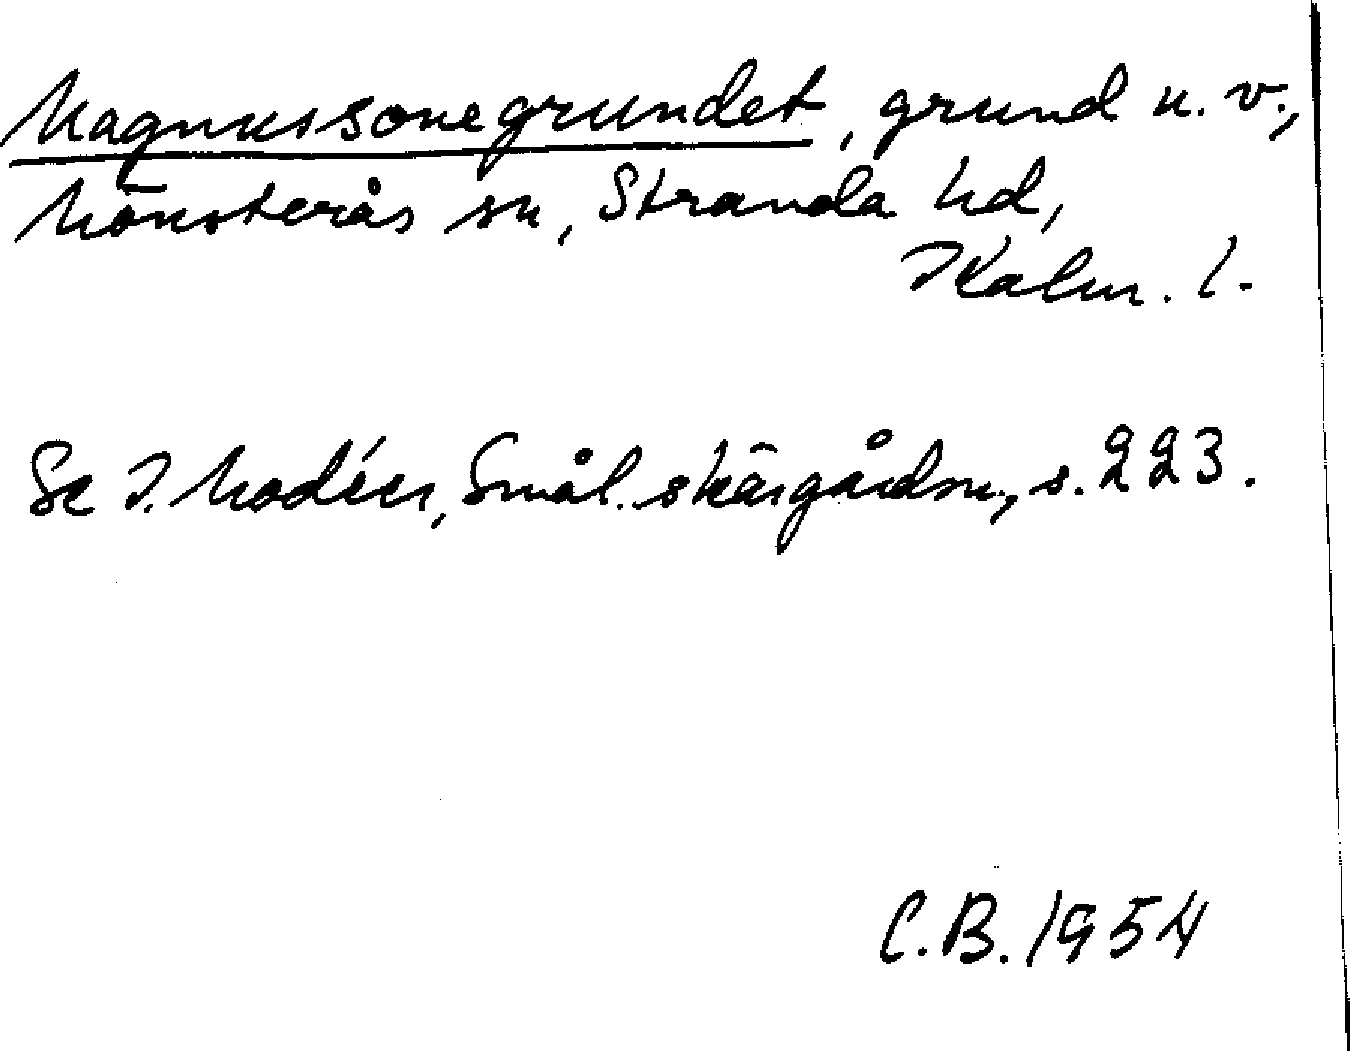 Magnussonegrundet, grund u. v.,
Mönsterås sn, Stranda hd,
Kalm. l.
Se I. Modéer, Smål. skärgårdsn., s. 223.
C.B. 1954